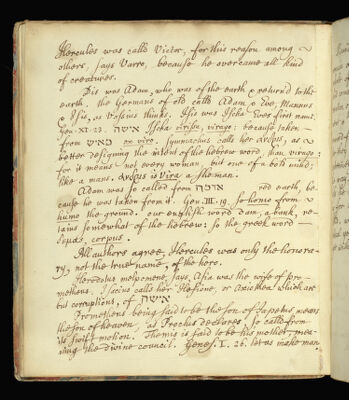 Hercules was calld Victor, for this reason among
others, says Varro, because he overcame all kind
of creatures.
Dis was Adam, who was of the earth & returnd to the
earth. the Germans of old calld Adam & Eve, Mannus
& Isis, as Vossius thinks. Isis was Isska Eves first name.
Gen. II. 23. אישה Isska virissa, virago: because taken
from מאיש ex viro. Symmachus calls her
better designing the intent of the hebrew word, than virago:
for it means not every woman, but one of bold mind;
like a mans. is Vira a shoman.
Adam was so called from אדמה red earth, be-
cause he was taken from it. Gen. III. 19. so homo from
humo the ground. our english word dam, a bank, re-
tains somewhat of the hebrew: so the greek word
corpus.
All authors agree, Hercules was only the honora-
ry, not the true name, of the hero.
Herodotus melpomene, says, Asia was the wife of pro-
metheus. calls her Hesione, or which are
but corruptions, of אישה
Prometheus being said to be the son of Japetus, means
the son of heaven, as Proclus declares, so calld from
its swift motion. Themis is said to be his mother, mea-
ning the divine council. Genes. I. 26. let us make man